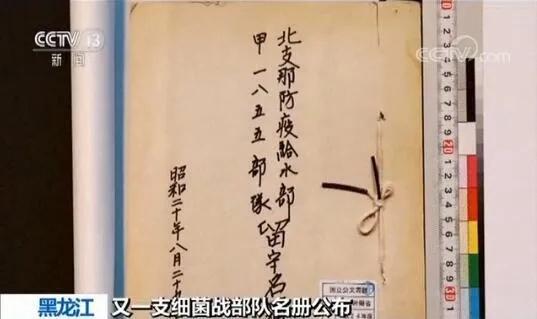 CCTV 13
新闻
CCTV.com
北支那防疫給水部
甲一八五五部隊留守名
昭和二十年八月二十
国立公文書館
黑龙江 又一支细菌战部队名册公布